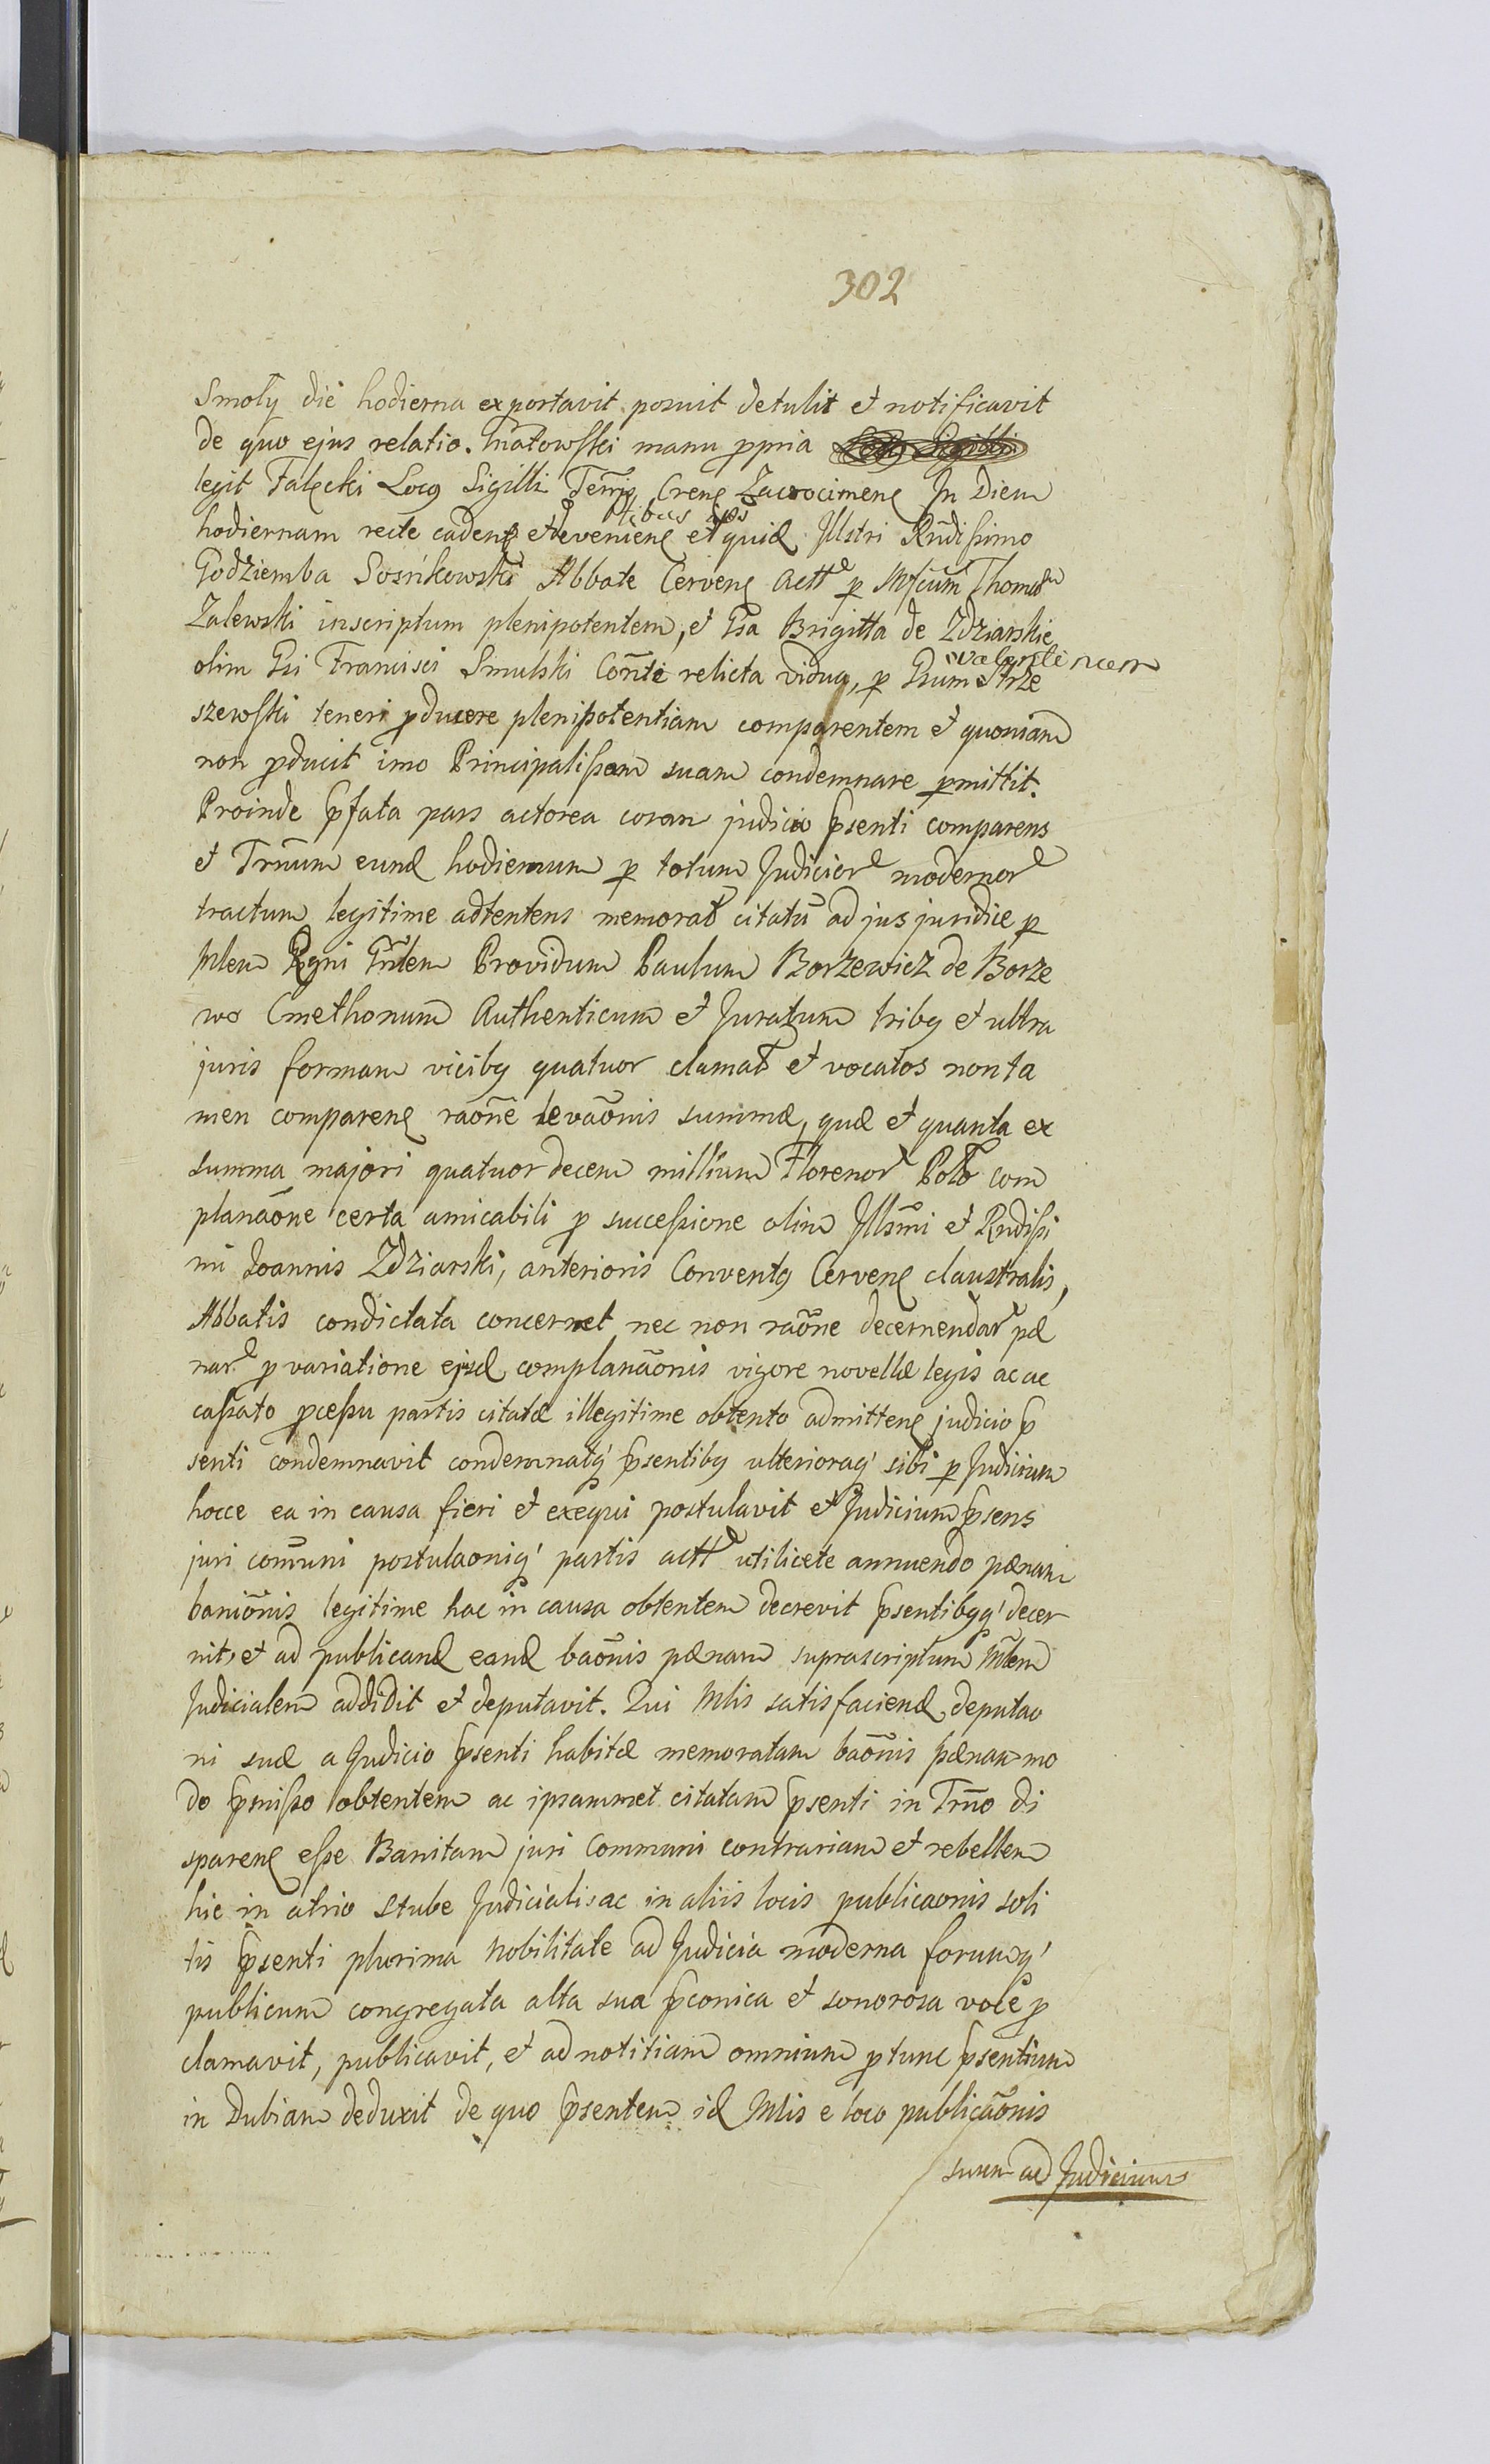 302
Smoły die hodierna exportavit posuit detulit et notificavit
de quo ejus relatio. Małowski manu ppria
legit Falęcki Locq Sigilli Terrīs Crenę Zacrocimenę In Diem
hodiernam recte cadenę et devenienę et quid Illstri Rndissimo
Godziemba Sosńkowski Abbate Cervenę Actt p Mfcum Thomam
Zalewski inscriptum plenipotentem, et Gsa Brigitta de Zdziarskie
valentinum
olim Gsi Francisci Smulski Conti relicta vidua, p Gsum Strze
szewski teneri pducere plenipotentiam comparentem et quoniam
non pducit imo Principalissam suam condemnare pmittit.
Proinde pfata pars actorea coram judicio psenti comparens
et Trnum eund hodiernum p totum Judicior modernor
tractum legitime adtentens memorat citatū ad jus juridice p
Mlem Rgni Gnlem Providum Paulum Borzewicz de Borze
wo Cmethonum Authenticum et Juratum tribq et ultra
juris formam vicibq quatuor clamat et vocatos non ta
men comparenę raōne levaōnis summæ, quæ et quanta ex
summa majori quatuordecem millium Florenor Polo com
planaōne certa amicabili p successione olim Illsmi et Rndissi
mi Joannis Zdziarski, anterioris Conventq Cervenę claustralis,
Abbatis condictata concernet nec non raōne decernendar pæ
nar p variatione ejsd complanaōnis vigore novellæ legis ac ac
cassato pcessu partis citatæ illegitime obtento admittenę judicio p
senti condemnavit condemnatq psentibq ulterioraq sibi p Judicium
hocce ea in causa fieri et exequi postulavit et Judicium psens
juri comuni postulaoniq partis actt utilicete annuendo pænam
baniōnis legitime hac in causa obtentem decrevit psentibqq decer
nit, et ad publicand eand baōnis pænam suprascriptum Mlem
Judicialem addidit et deputavit. Qui Mlis satisfaciend deputao
ni suæ a Judicio psenti habitæ memoratam baōnis pænam mo
do pmisso obtentem ac ipsammet citatam psenti in Trno di
sparenę esse Banitam juri Communi contrariam et rebellem
hic in atrio Stubæ Judicialis ac in aliis locis publicaonis soli
tis psenti plurima Nobilitate ad Judicia moderna forumq
publicum congregata alta sua pconica et sonorosa voce p
clamavit, publicavit, et ad notitiam omnium ptunc psentium
in Dubiam deduxit de quo psentem id Mlis e loco publicāonis
suum ad Judicium